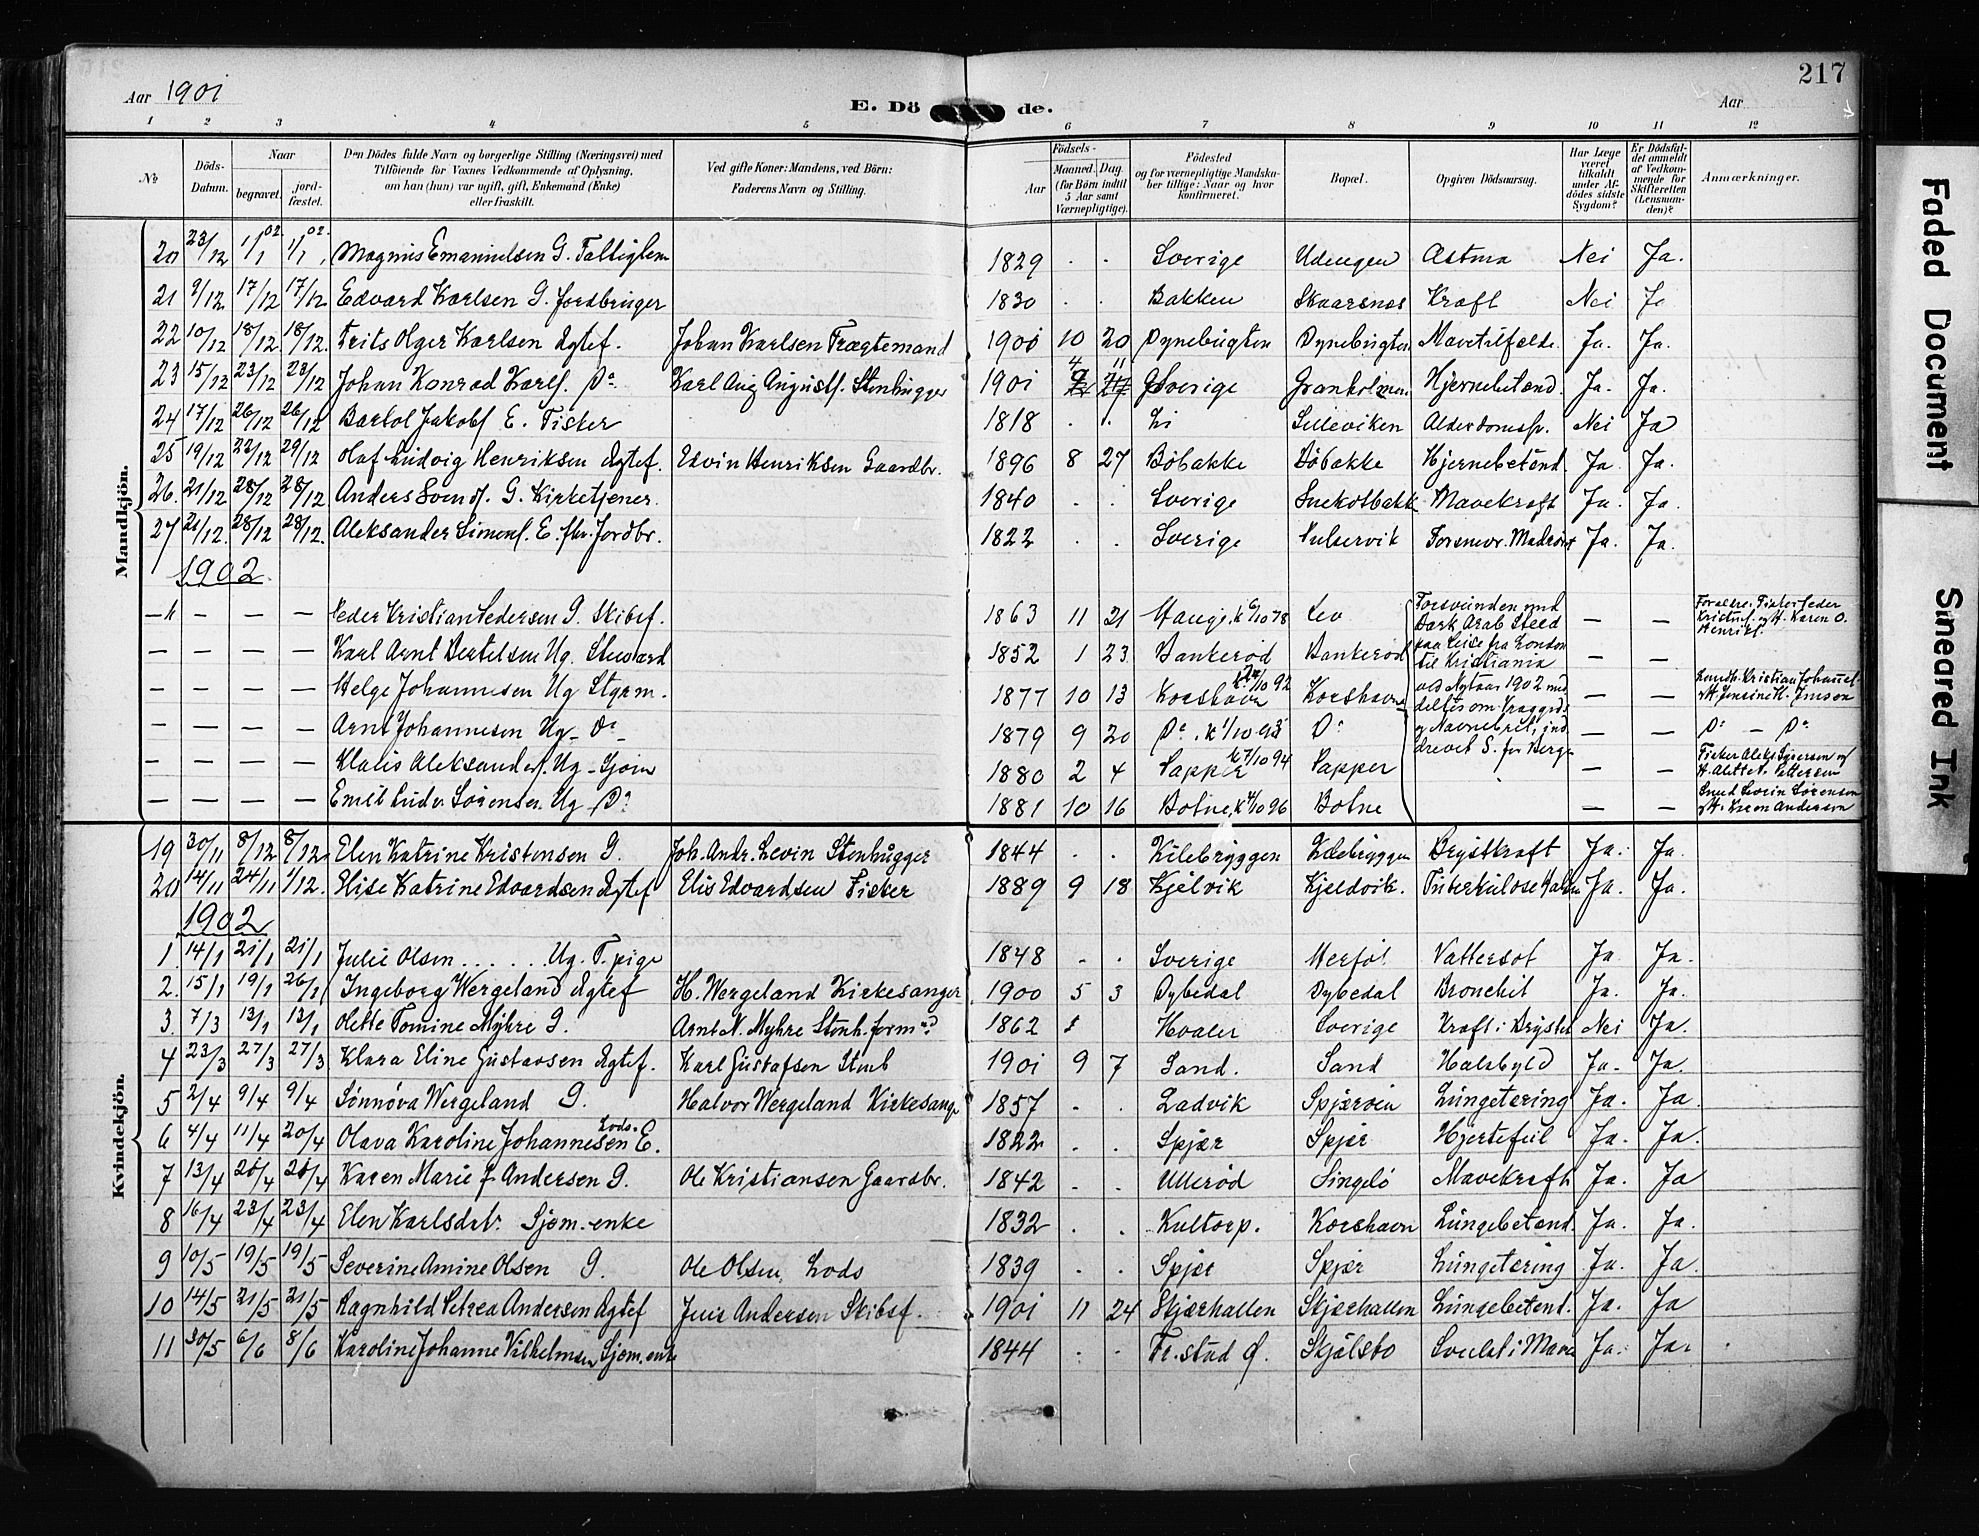 217
Aar 1901
E. Döde.
Aar
1 2 3 4 5 6 7 8 9 10 11 12
No
Döds-Datum.
Naar
begravet.
jord-fæstet.
Den Dödes fulde Navn og borgerlige Stilling (Næringsvei) med
Tilföiende for Voxnes Vedkommende af Oplysning,
om han (hun) var ugift, gift, Enkemand (Enke)
eller fraskilt.
Ved gifte Koner: Mandens, ved Börn:
Faderens Navn og Stilling.
Födsels-
Aar
Maaned. Dag.
(for Börn indtil
5 Aar samt
Værnepligtige).
Födested
og for værnepligtige Mandska-
ber tillige: Naar og hvor
konfirmeret.
Bopæl.
Opgiven Dödsaarsag.
Har Læge
været
tilkaldt
under Af-
dödes sidste
Sygdom?
Er Dödsfal-
det anmeldt
af Vedkom-
mende for
Skifteretten
(Lensman-
den)?
Anmærkninger.
Mandkjön.
20 23/12 1/1 02 1/1 02. Magnus Emanuelsen G. Fattiglem 1829 . . Sverige Udengen Astma Nei Ja.
21 9/12 17/12 17/12 Edvard Karlsen G. Jordbruger 1830 . . Bakken Skaarsnes Kræft Nei Ja
22 10/12 18/12 18/12. Frits Olger Karlsen Ægtef. Johan Karlsen Fragtemand 1900 10 20 Dynebugten Dynebugten Mavetilfælde. Ja. Ja.
23 15/12 23/12 23/12 Johan Konrad Karls. Do. Karl Aug Augusts. Stenhugger 1901 4 11 Sverige Granholmen Hjernebetænd. Ja. Ja.
24 17/12 26/12 26/12 Bartol Jakobs E. Fisker 1818 . . Li Lilleviken Alderdomssv. Nei Ja
25 19/12 22/12 29/12 Olaf Ludvig Henriksen Ægtef. Edvin Henriksen Gaardbr. 1896 8 27 Böbakke Böbakke Hjernebetænd. Ja. Ja.
26. 21/12 28/12 28/12. Anders Svends. G. Kirketjener. 1840 . . Sverige Snekotbakk. Mavekræft Ja. Ja.
27 21/12. 28/12 28/12. Aleksander Simons. E. fhv. Jordbr. 1822 . . Sverige Ja. Ja.
1902
— — — — Peder Kristian Pedersen G. Skibsf. 1863 11 21 Hauge, k 6/10 78 Lev — —
— — — — Karl Arnt Bertelsen Ug. Steward 1852 1 23 Bankeröd Bankeröd — —
— — — — Helge Johannesen Ug Styrm. 1877 10 13 Korshavn k. 2/10 92 Korshavn — —
— — — — Arnt Johannesen Ug – Do – 1879 9 20 Do. k 1/10 93 Do — — Do – Do
— — — — Klaus Aleksanders. Ug – Sjöm 1880 2 4 Papper k 7/10 94 Papper — —
— — — — Emil Peder Sörensen. Ug Do 1881 10 16 Botne, k 4/10 96 Botne — —
Forsvunden med
Bark Arab Steed
paa Reise fra London
til Kristiania
ved Nytaar 1902
Forældre: Fisker Peder
Kristens. og H. Karen O.
Henriks.
Kristian Johannes.
og H. Jensine K. Jenson
Fisker Aleks Syversen og
H. Alette N. Pettersen
Lorin Sörensen
og H. Karen Anderson
Kvindekjön.
19 30/11 8/12 8/12. Elen Katrine Kristensen G. Joh. Andr. Levin Stenhugger 1844 . . Kilebryggen Kilebryggen Brystkræft Ja. Ja.
20 14/11 24/11 1/12. Elise Katrine Edvardsen Ægtef Elis Edvardsen Fisker 1889 9 18 Kjelvik Kjeldvik. Tuberkulose Ja. Ja.
1902
1. 14/1 21/1 21/1 Julie Olsen . . . . . Ug. T. pige 1848 – . Sverige Vattersot Ja Ja.
2. 15/1 19/1 26/1 Ingeborg Wergeland Ægtef H. Wergeland Kirkesanger 1900 5 3 Dybedal Dybedal Bronchit Ja. Ja.
3. 7/3 13/1 13/1 Olette Tomine Myhre G. Arnt N. Myhre Stenh.formd 1862 Hvaler Sverige Kræft i Brystet Nei Ja.
4 23/3 27/3 27/3 Klara Eline Gustavsen Ægtef. Karl Gustafsen Stenh 1901 9 7 Sand. Sand Halsbyld Ja. Ja.
5 2/4 9/4 9/4 Sönnöva Wergeland G. Halvor Wergeland Kirkesange 1857 . . Ladvik Spjæröen Lungetæring Ja. Ja.
6 4/4 11/4 20/4 Olava Karoline Johannesen Lods. E. 1822 . . Spjær Spjær Hjertefeil Ja. Ja.
7 13/4 20/4 20/4 Karen Marie J Andersen G. Ole Kristiansen Gaardbr. 1842 . . Ulleröd Singelö Mavekræft Ja. Ja
8 16/4 23/4 23/4 Elen Karlsdatr. Sjöm.enke 1832 . . Kultorp. Korshavn Lungebetænd. Ja. Ja.
9 10/5 19/5 19/5 Severine Amine Olsen G. Ole Olsen Lods 1839 . . Spjær Spjær Lungetæring Ja. Ja.
10 14/5 21/5 21/5 Ragnhild Petrea Andersen Ægtef Juul Andersen Skibsf. 1901 11 24 Skjærhallen Skjærhallen Lungebetænd. Ja. Ja
11 30/5 6/6 8/6 Karoline Johanne Vilhelmsen Sjöm.enke 1844 . . Fr.stad Ö. Skjælsbo Svulst i Maven Ja. Ja.
Faded Document
Smeared Ink